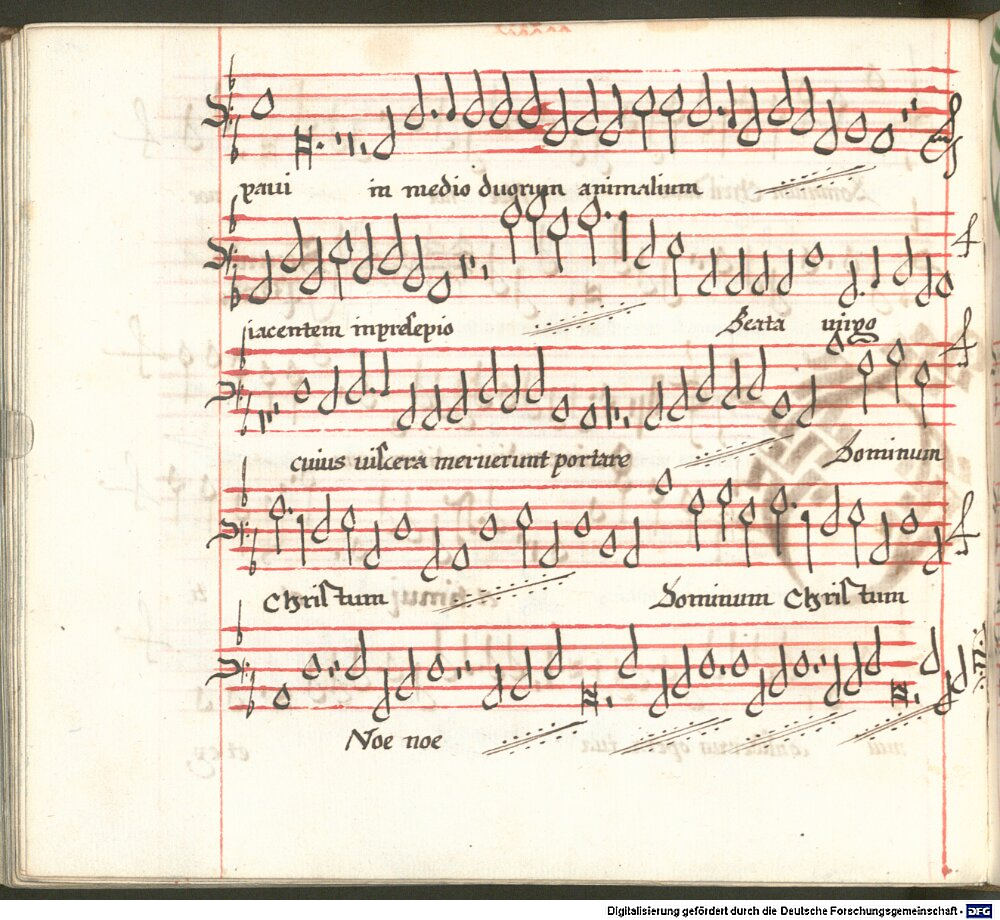 paui in medio duorum animalium
iacentem in presepio Beata uirgo
cuius uiscera meruerunt portare Dominum
Christum Dominum Christum
Noe noe
Digitalisierung gefördert durch die Deutsche Forschungsgemeinschaft - DFG